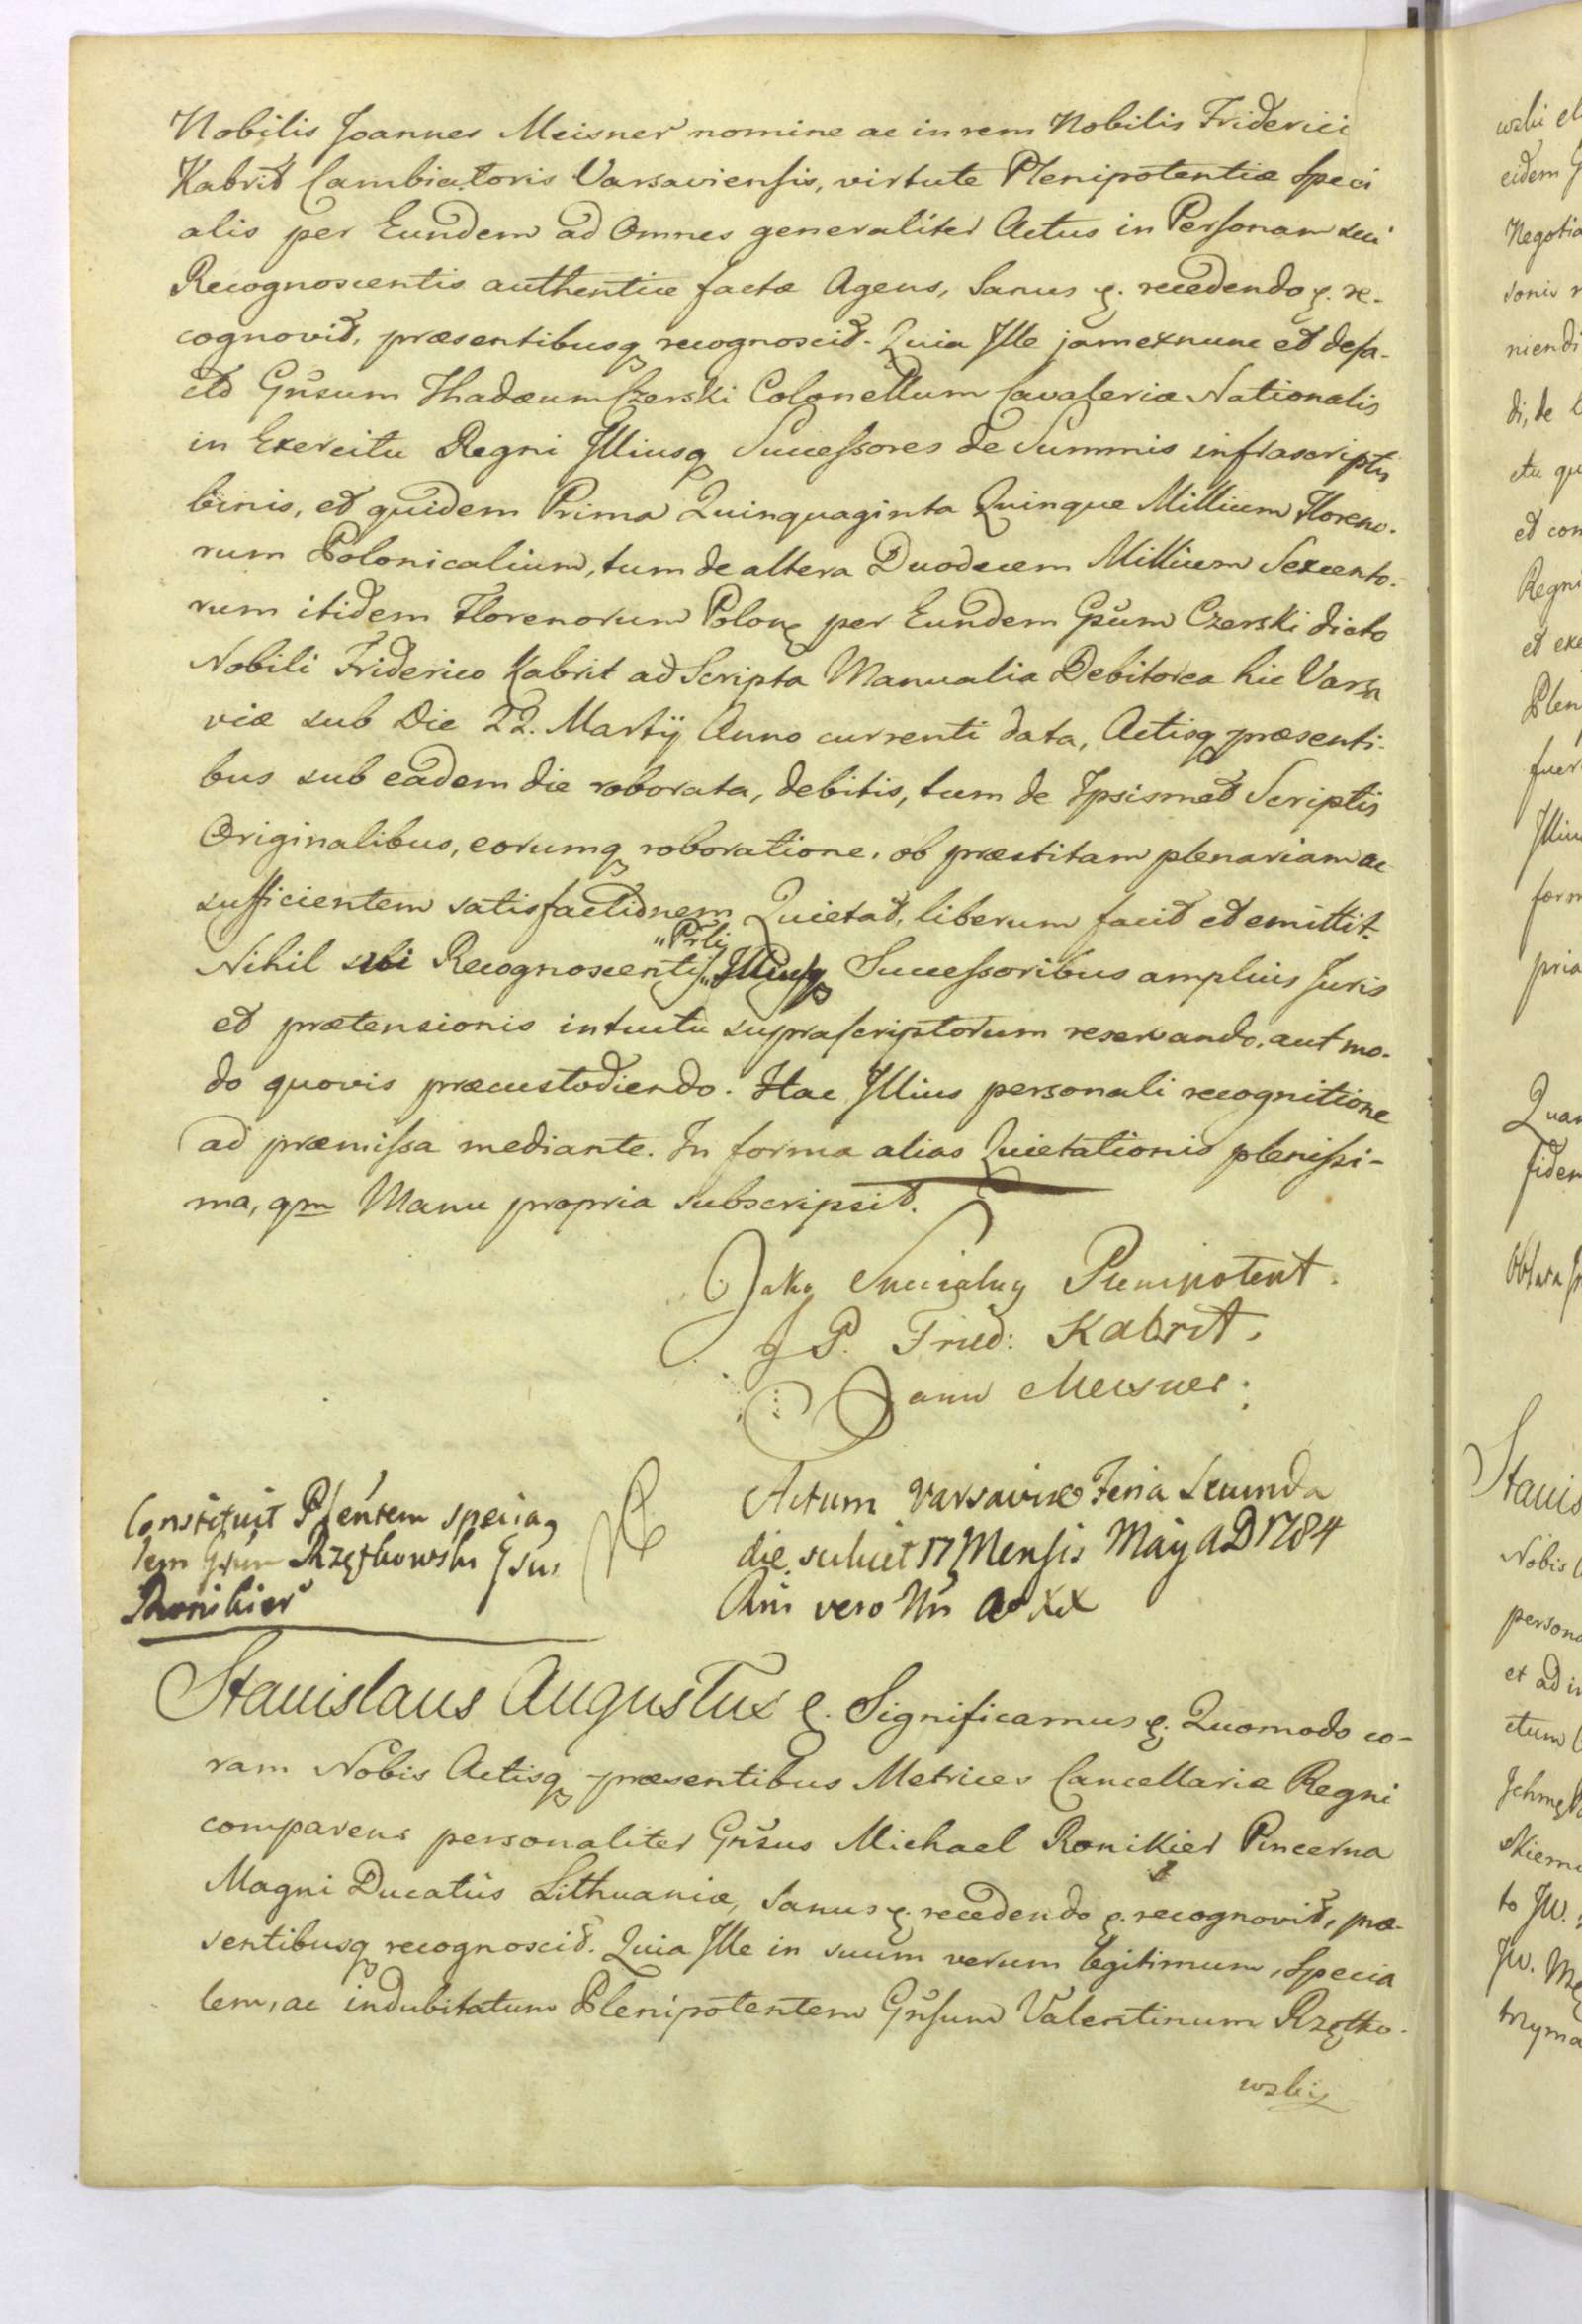 Nobilis Joannes Meisner nomine ac in rem Nobilis Friderici
Kabrit Cambiatoris Varsaviensis, virtute Plenipotentiæ Speci
alis per Eundem ad Omnes generaliter Actus in Personam sui
Recognoscentis authentice factæ Agens, Sanus &. recedendo &. re-
cognovit, præsentibusq recognoscit. Quia Ille jam exnunc et defa-
cto Gñsum Thadæum Czerski Colonellum Cavaleriæ Nationalis
in Exercitu Regni Illiusq Successores de Summis infrascriptis
binis, et quidem Prima Quinquaginta Quinque Millium Floreno-
rum Polonicalium, tum de altera Duodecem Millium Sexcento-
rum itidem Florenorum Polon per Eundem Gsum Czerski dicto
Nobili Friderico Kabrit ad Scripta Manualia Debitorea hic Varsa
viæ sub Die 22. Martij Anno currenti data, Actisq præsenti-
bus sub eadem die roborata, debitis, tum de Ipsismet Scriptis
Originalibus, eorumq roboratione, ob præstitam plenariam ac
sufficientem satisfactionem Quietat, liberum facit et emittit.
"Prli
Nihil sui Recognoscentis " Illiusq Successoribus amplius Juris
et prætensionis intuitu suprascriptorum reservando, aut mo-
do quovis præcustodiendo. Hac Illius personali recognitione
ad præmissa mediante. In forma alias Quietationis plenissi-
ma, qm Manu propria Subscripsit.
Jako Specjalny Plenipotent.
J P. Fried: Kabrit.
Jann Meisner.
Constituit Plentem specia
lem Gsum Rzętkowski Gsus
Ronikier
Actum Varsaviæ Feria Secunda
die scilicet 17 Mensis Maÿ AD 1784
Rni vero Nri Ao XX
Stanislaus Augustus &. Significamus &. Quomodo co-
ram Nobis Actisq præsentibus Metrices Cancellariæ Regni
comparens personaliter Gñsus Michael Ronikier Pincerna
Magni Ducatûs Lithuaniæ, Sanus &. recedendo &. recognovit, præ-
sentibusq recognoscit. Quia Ille in suum verum legitimum, Specia
lem, ac indubitatum Plenipotentem Gñsum Valentinum Rzętko-
wski